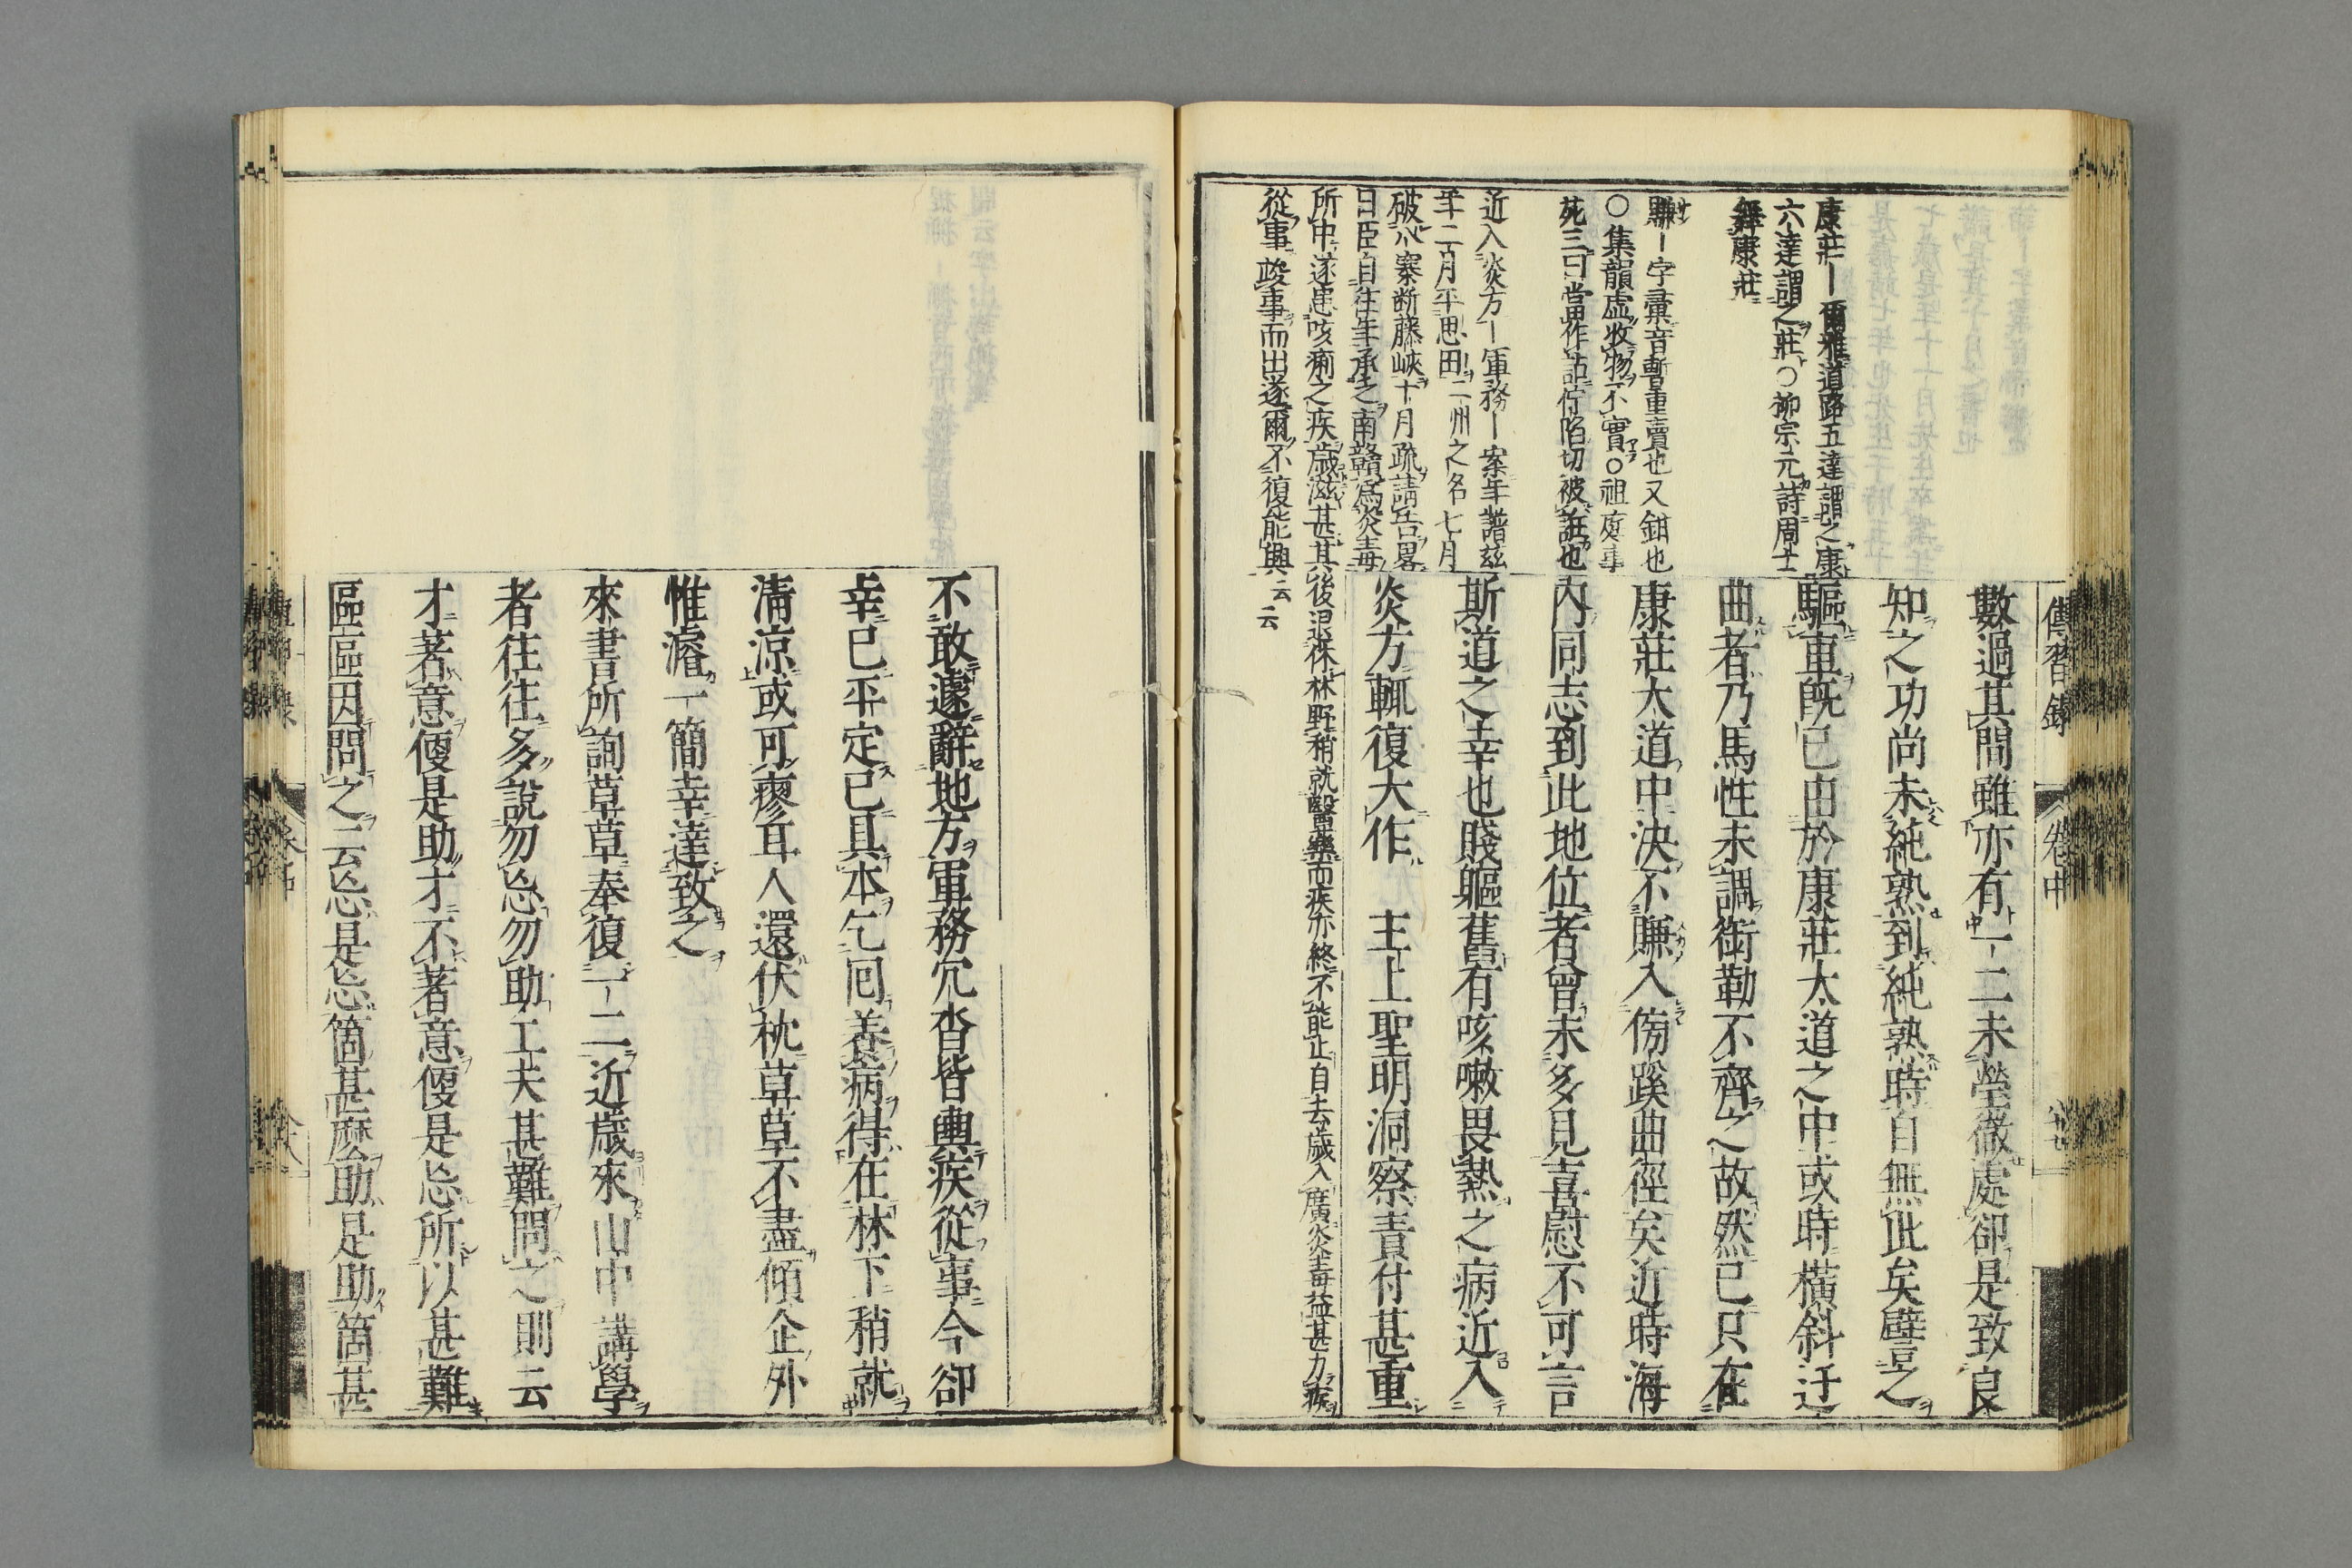 傳習錄
卷中
數過其間雖亦有一二未瑩徹處卻是致良
知之功尚未純熟到純熟時自無此矣譬之
驅車既已由於康莊大道之中或時橫斜迂
曲者乃馬性未調銜勒不齊之故然已只在
康莊大道中決不賺入傍蹊曲徑矣近時海
內同志到此地位者曾未多見喜慰不可言
斯道之幸也賤軀舊有咳嗽畏熱之病近入
炎方輒復大作　主上聖明洞察責付甚重
康莊ー爾雅道路五達謂之康
六達謂之莊○柳宗元詩周士
康莊
賺ー字彙音暫重賣也又錯也
○集韻虛收物不實○祖庭事
苑三曰當作詀佇陷切被誑也
近入炎方ー軍務ー案年譜茲
年二月平思田二州之名七月
破八寨斷藤峽十月疏請告畧
曰臣自往年承乏南贛爲炎毒
所中遂患咳痢之疾歲滋甚其後退休林野稍就醫藥而疾亦終不能止自去歲入廣炎毒益甚力疾
從事竣事而出遂爾不復能興云云
不敢遽辭地方軍務冗沓皆輿疾從事今卻
幸已平定已具本乞回養病得在林下稍就
清涼或可瘳耳人還伏枕草草不盡傾企外
惟濬一簡幸達致之
來書所詢草草奉復一二近歲來山中講學
者往往多說勿忘勿助工夫甚難問之則云
才著意便是助才不著意便是忘所以甚難
區區因問之云忘是忘箇甚麽助是助箇甚